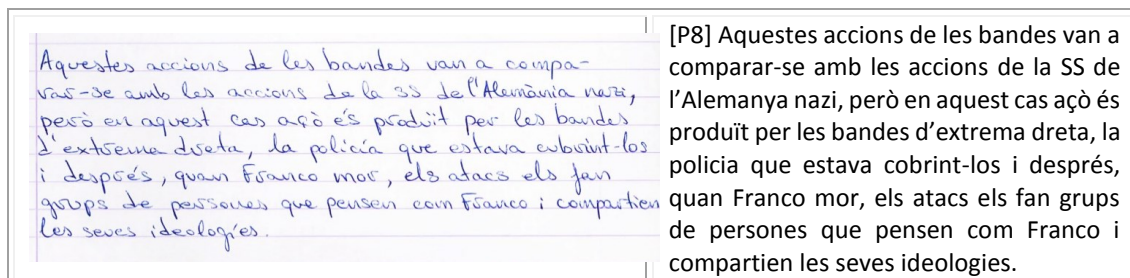 Aquestes accions de les bandes van a compa-
rar-se amb les accions de la SS de l'Alemània nazi,
però en aquest cas açò és produït per les bandes
d'extrema dreta, la policía que estava cubrint-los
i després, quan Franco mor, els atacs els fan
grups de persones que pensen com Franco i compartien
les seves ideologíes.
[P8] Aquestes accions de les bandes van a
comparar-se amb les accions de la SS de
l'Alemanya nazi, però en aquest cas açò és
produït per les bandes d'extrema dreta, la
policia que estava cobrint-los i després,
quan Franco mor, els atacs els fan grups
de persones que pensen com Franco i
compartien les seves ideologies.